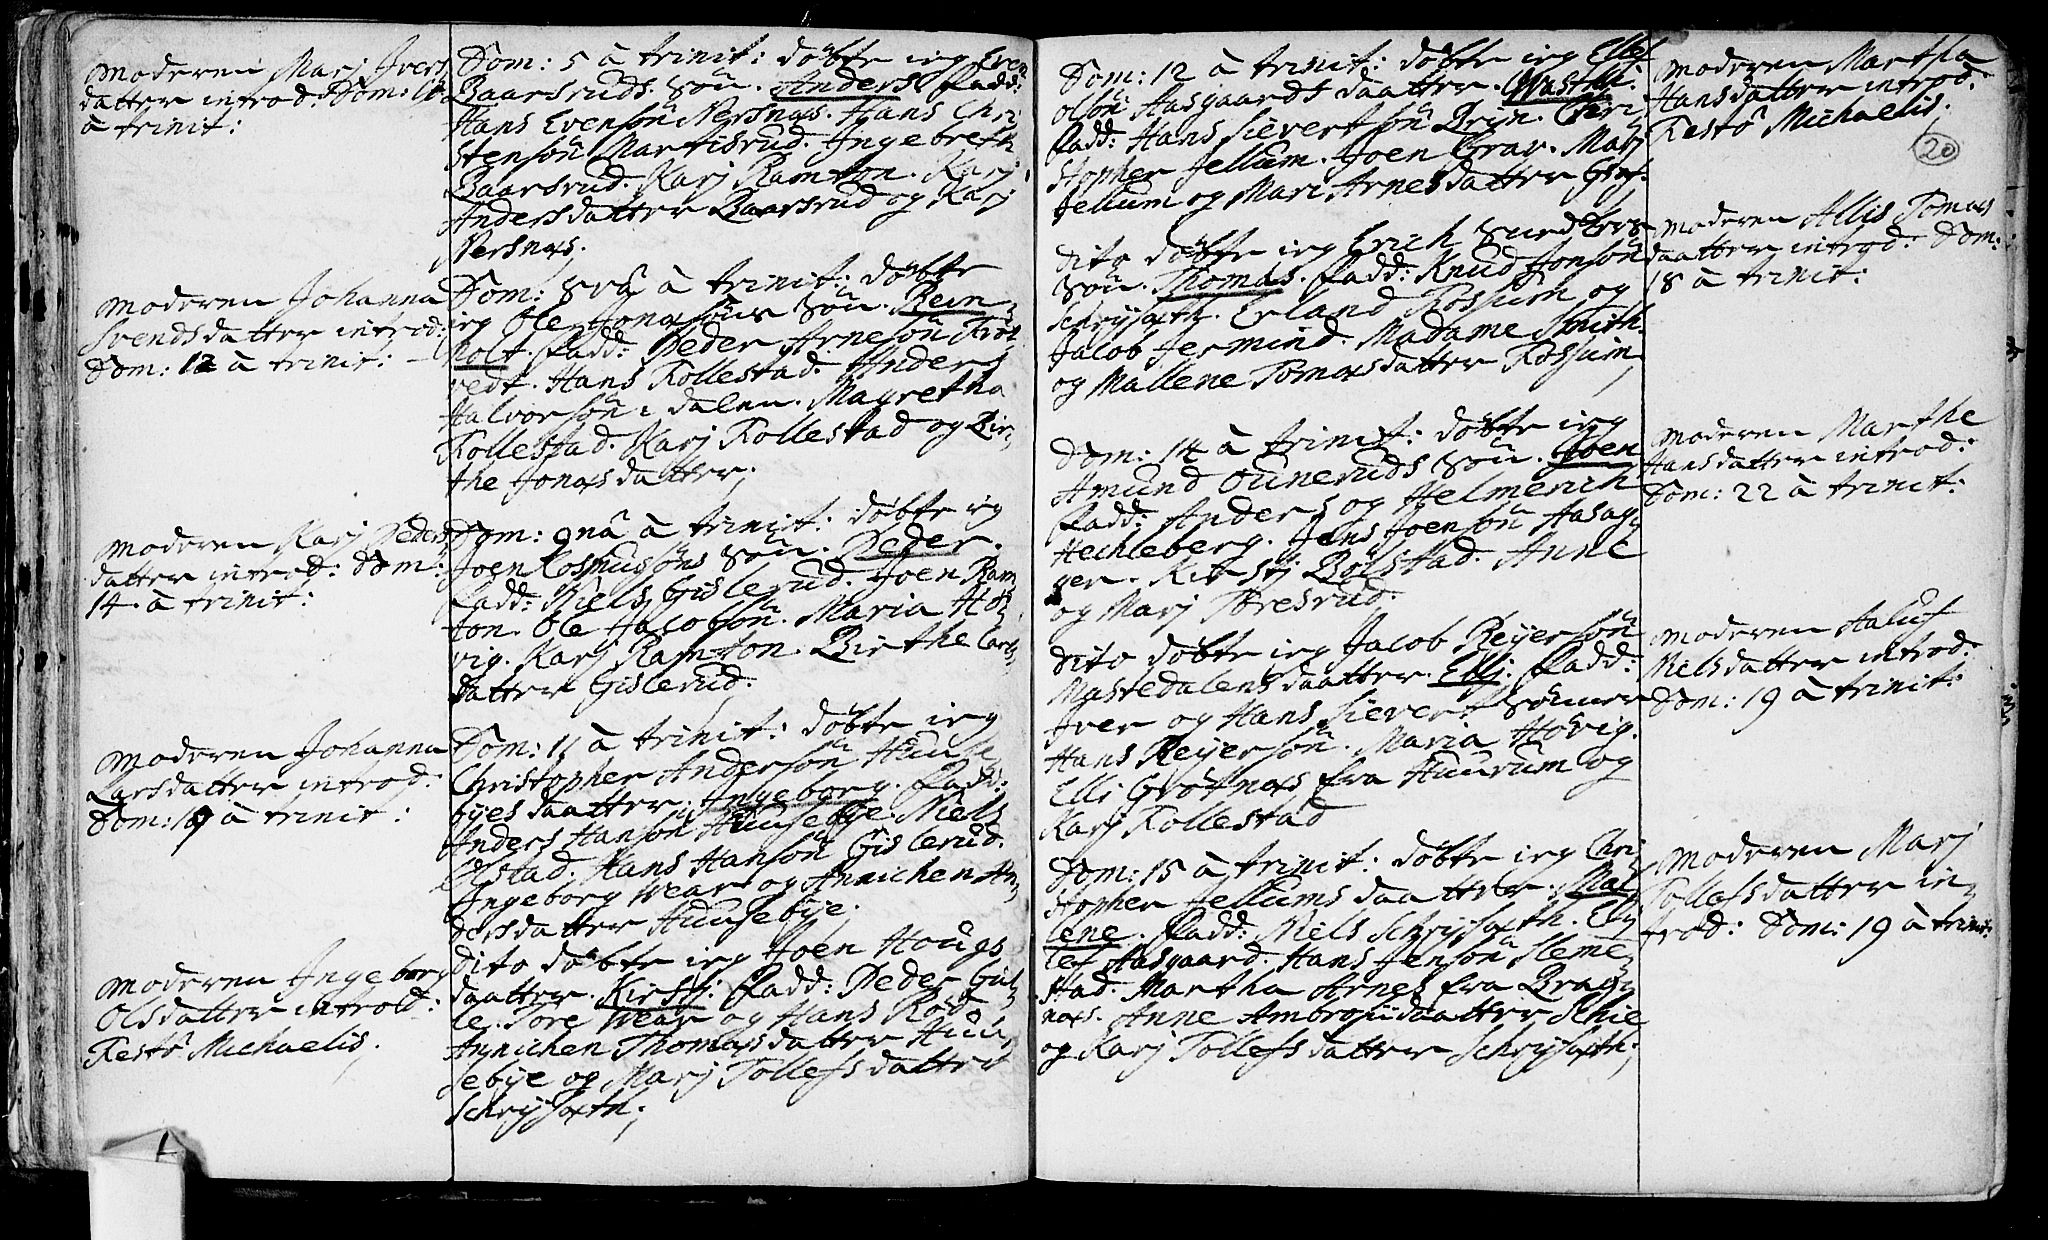 Moderen Marj Ivers
datter introd: Dom: 10
à trinit:
Moderen Johanna
Svendsdatter introd:
Dom: 12 à trinit:
Moderen Karj Peders
datter introd: Dom:
14 à trinit:
Moderen Johanna
Larsdatter introd:
Dom: 19 à trinit:
Moderen Ingeborg
Olsdatter introd:
Festo Michaelis.
Dom: 5 à trinit: døbte ieg Even
Baarsruds Søn. Anders. Fadd:
Hans Evensøn Nersnæs. Hans Chri
stensøn Martisrud. Ingebreth
Baarsrud. Karj Ramton. Karj
Andersdatter Baarsrud og Karj
Nersnæs.
Dom: 8va à trinit: døbte
ieg Ole Jonæsøns Søn. Rein
holt. Fadd: Peder Arnesøn
vedt. Hans Follestad. Anders
Halvorsøn i dalen. Magretha
Follestad. Karj Follestad og Bir
the Jonæsdatter;
Dom: 9na à trinit: døbte ieg
Joen Rosmusøns Søn. Peder.
Fadd: Niels Gislerud. Joen Ram
ton. Ole Jacobsøn. Maria Hø
vig. Karj Ramton. Birthe Cars
datter Gislerud.
Dom: 11 à trinit: døbte ieg
Christopher Andersøn Huuse
byes daatter. Ingeborg. Fadd:
Anders Hansøn Huusebye. Niels
Elstad. Hans Hansøn Gislerud.
Ingeborg Wear og Annichen An
dersdatter Huusebye;
Dito døbte ieg Joen Hougs
daatter. Kirstj: Fadd: Peder Gul
le. Tore Wear og Hans Rød
Annichen Thomæsdatter Huu
sebye og Marj Tollefsdatter
Schrysæth;
Dom: 12 à trinit: døbte ieg Ellef
Olsøn Aasgaards daatter.
Fadd: Hans Sievertsøn Brin. Chri
stopher Jellum. Joen Grav. Marj
Jellum og Mari Arnesdatter
Dito døbte ieg Erich
Søn. Thomas. Fadd: Knud Jonsøn
Schrysæth. Erland Rossum og
Jacob Jermind. Madame Smith
og Mallene Tomæsdatter Rossum
Dom: 14 à trinit: døbte ieg
Amund Ouneruds Søn. Joen
Fadd: Anders og Helmerich
Hechleberg. Jens Joensøn Aasag
ger. Kirstj Bølstad. Anne
og Marj Toresrud.
Dito døbte ieg Jacob Reyersøn
Næstedalens daatter. Ellj: Fadd:
Iver og Hans Sievert Sønner
Hans Reyersøn. Maria Høvig.
Elli Grøtnæs fra Huurum og
Karj Follestad
Dom: 15 à trinit: døbte ieg Chri
stopher Jellums daatter. Mal
lene. Fadd: Niels Schrysæth. El
lef Aasgaard. Hans Jensøn Sleme
stad. Martha Arnes fra Brag
næs. Anne Ambrosiidaatter Schie
og Karj Tollefsdatter Schrysæth;
Moderen Martha
Hansdatter introd:
Festo Michaelis;
20
Moderen Allis Tomæs
daatter introd: Dom:
18 à trinit:
Moderen Marthe
Hansdatter introd:
Dom: 22 à trinit:
Moderen Aaluf
Nielsdatter introd:
Dom: 19 à trinit:
Moderen Marj
Tollefsdatter in
trod: Dom: 19 à trinit: